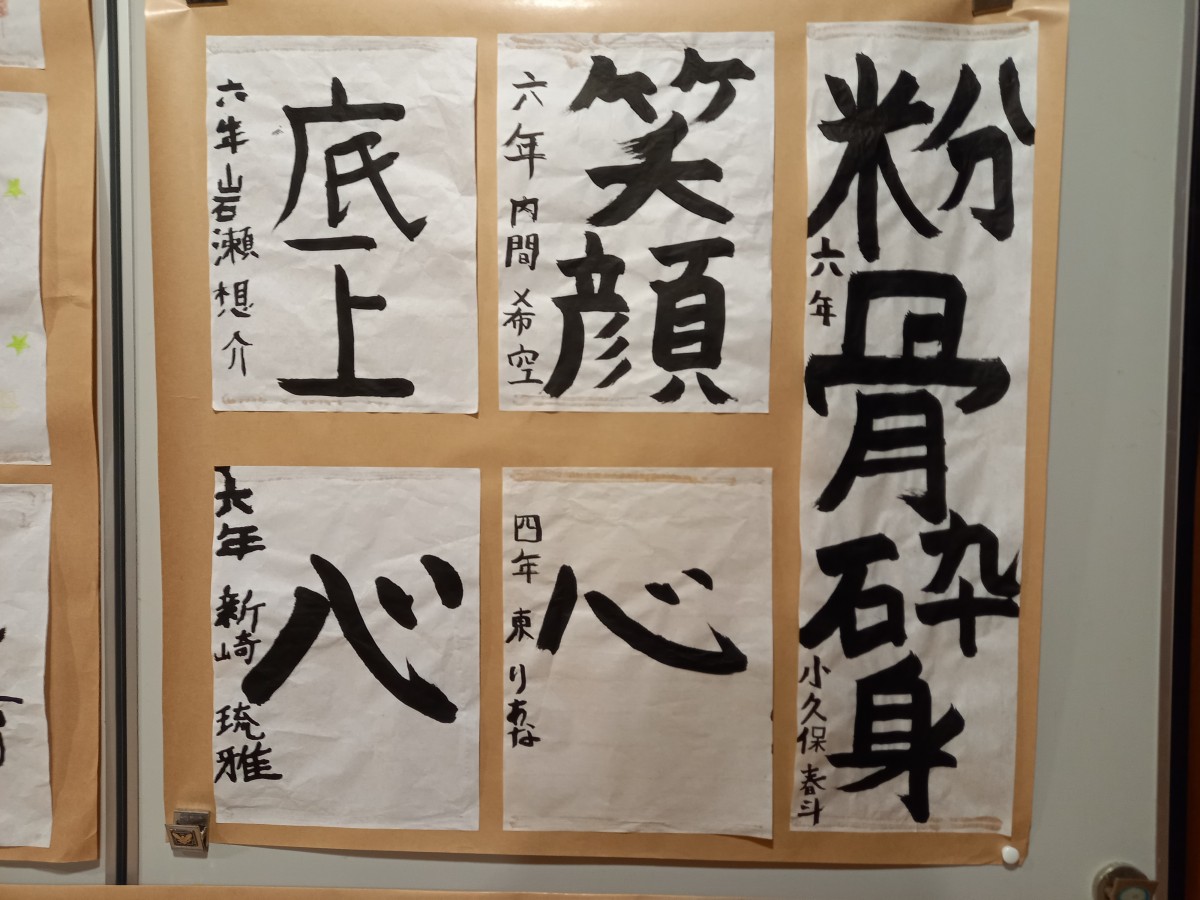 粉骨砕身
六年
小久保春斗
笑顔
六年 内間希空
底上
六年 岩瀬想介
心
四年 東りあな
心
六年 新崎琉雅